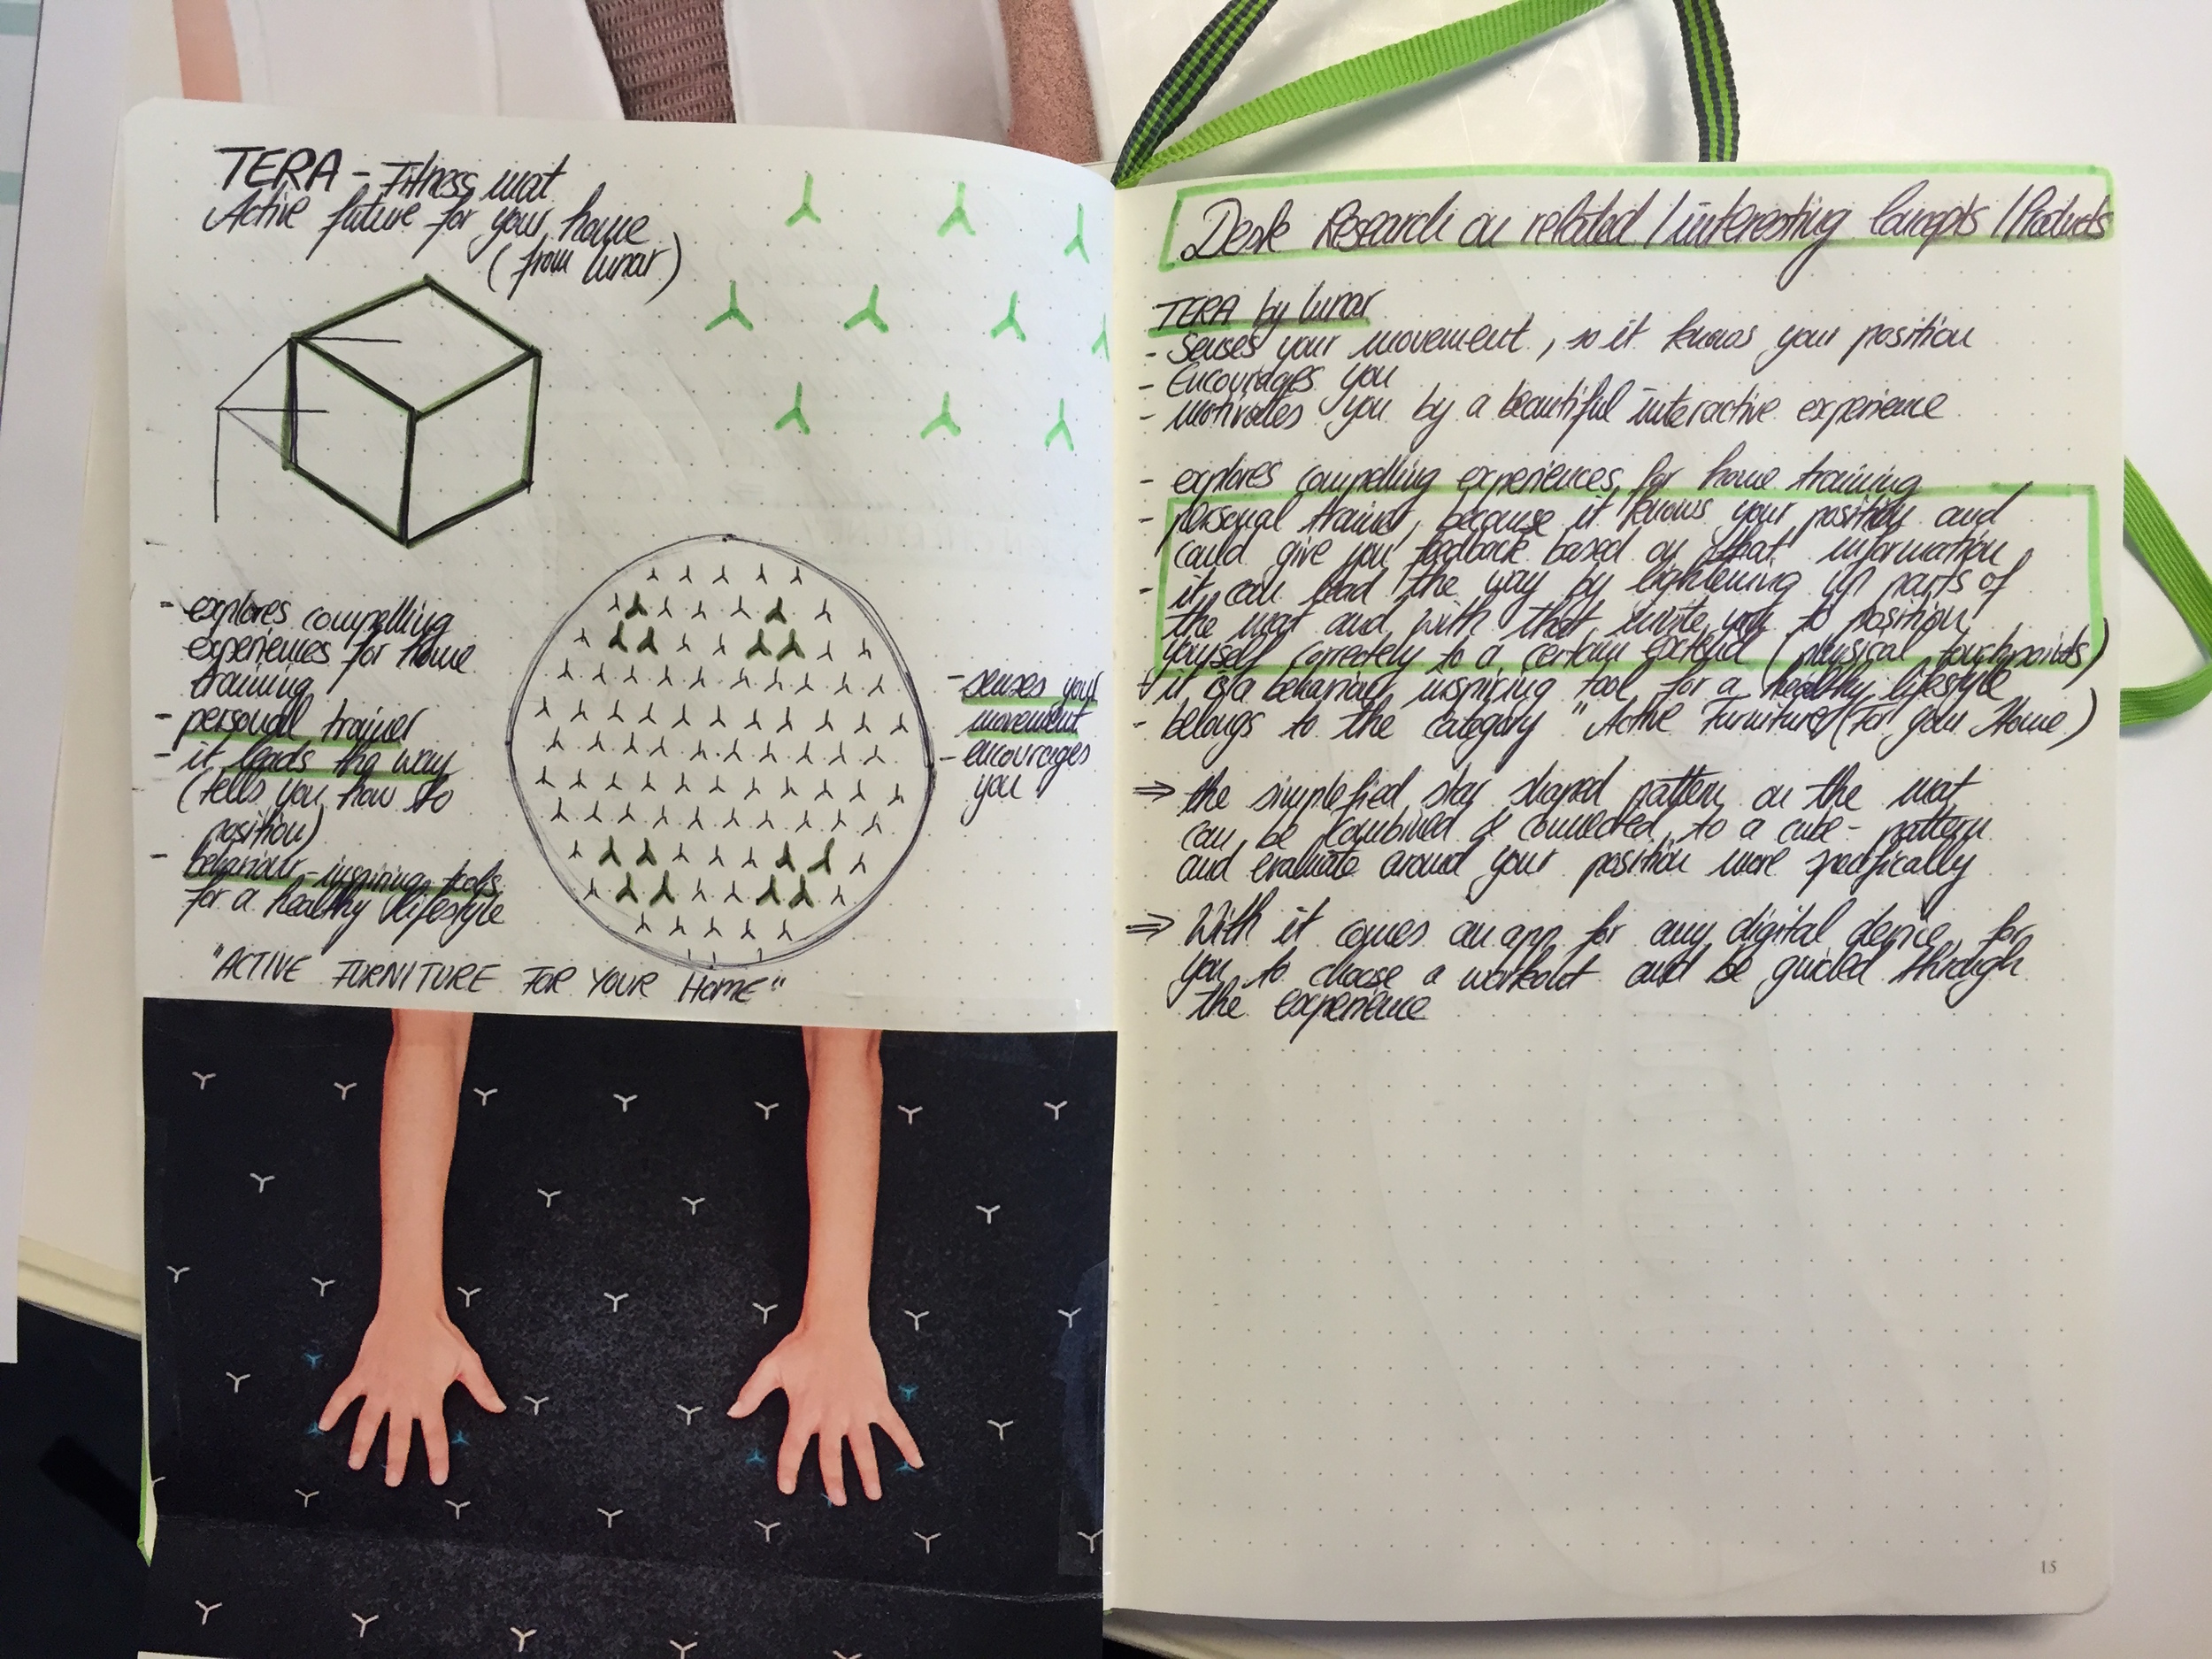 TERA - Fitness mat
Active future for your home
(from lunar)
- explores compelling
experiences for home
training
- personal trainer
- it leads the way
(tells you how to
position)
- behaviour-inspiring tools
for a healthy lifestyle
- senses your
movement
- encourages
you
"ACTIVE FURNITURE FOR YOUR HOME"
Desk Research on related / interesting Concepts / Products
TERA by lunar
- Senses your movement, so it knows your position
- Encourages you
- motivates you by a beautiful interactive experience
- explores compelling experiences for home training
- personal trainer, because it knows your position and
could give you feedback based on that information
- it can lead the way by lightening up parts of
the mat and with that invite you to position
yourself correctely to a certain extend (physical touchpoints)
- it is a behaviour inspiring tool for a healthy lifestyle
- belongs to the category "Active Furniture (For your Home)
⇒ the simplefied star shaped pattern on the mat
can be combined & connected to a cube-pattern
and evaluate around your position more specifically
⇒ With it comes an app for any digital device for
you to choose a workout and be guided through
the experience
15